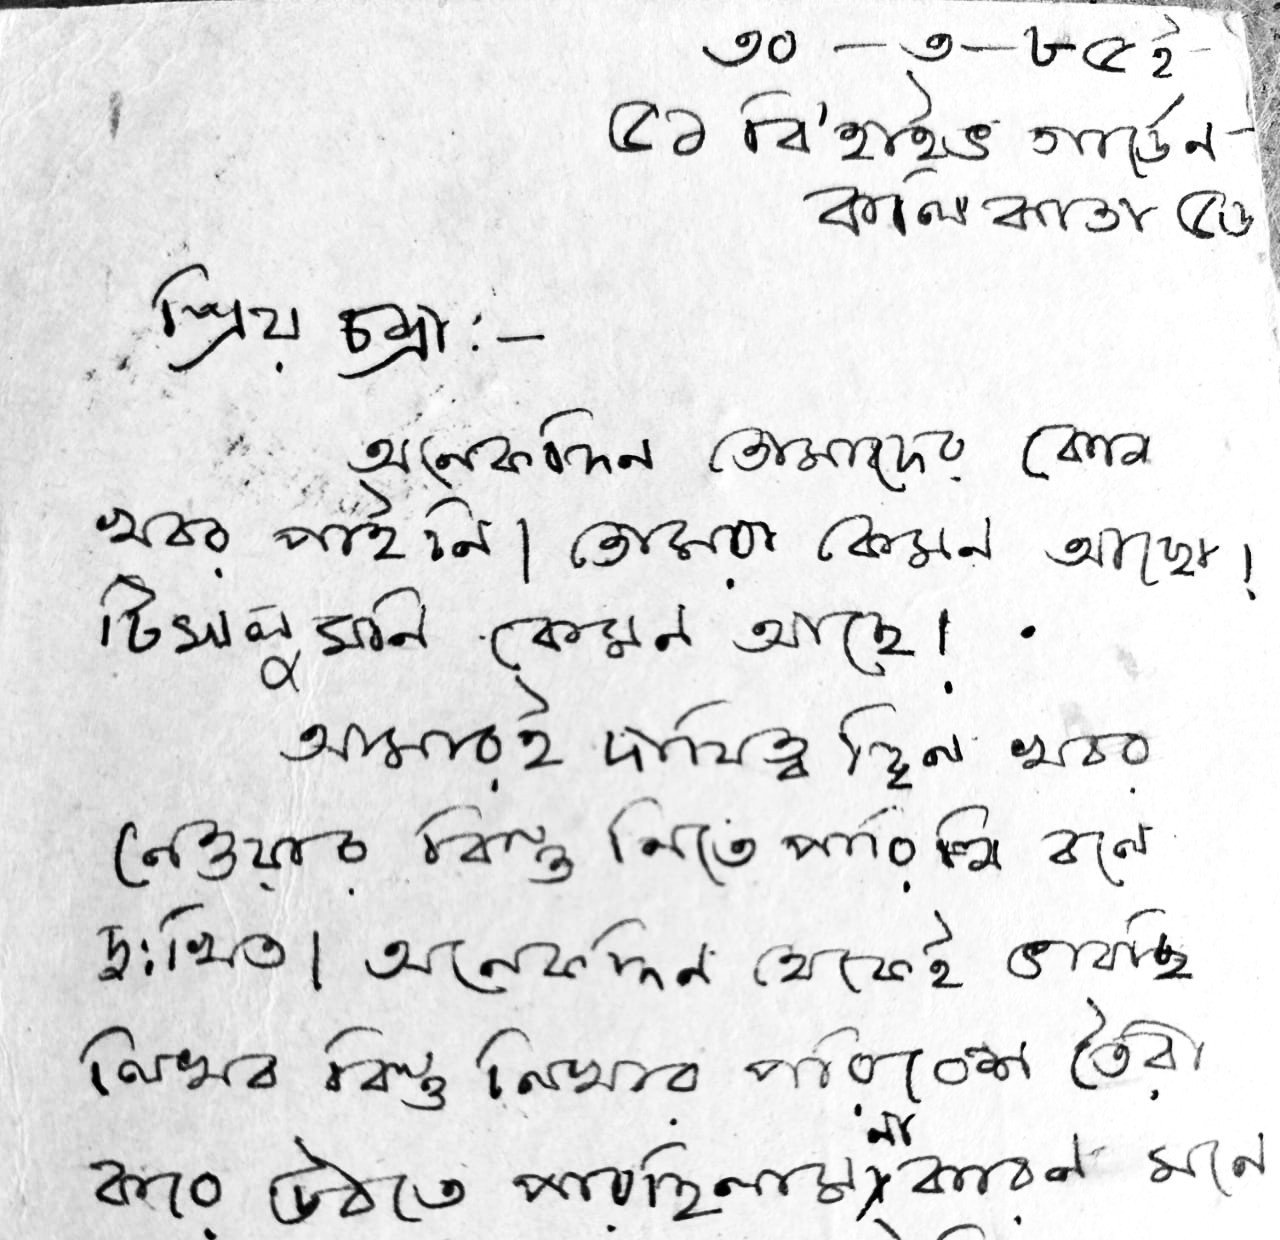 ৩০ – ৩ – ৮৫ ইং
৫১ বি' হাইড গার্ডেন
কলিকাতা ৫৬
প্রিয় চম্পা :–
অনেকদিন তোমাদের কোন
খবর পাই নি। তোমরা কেমন আছো।
মনি কেমন আছে।
আমারই দায়িত্ব ছিল খবর
নেওয়ার কিন্তু নিতে পারি নি বলে
দুঃখিত। অনেকদিন থেকেই ভাবছি
লিখব কিন্তু লিখার পরিবেশ তৈরী
করে উঠতে পারছিলাম না কারন মনে